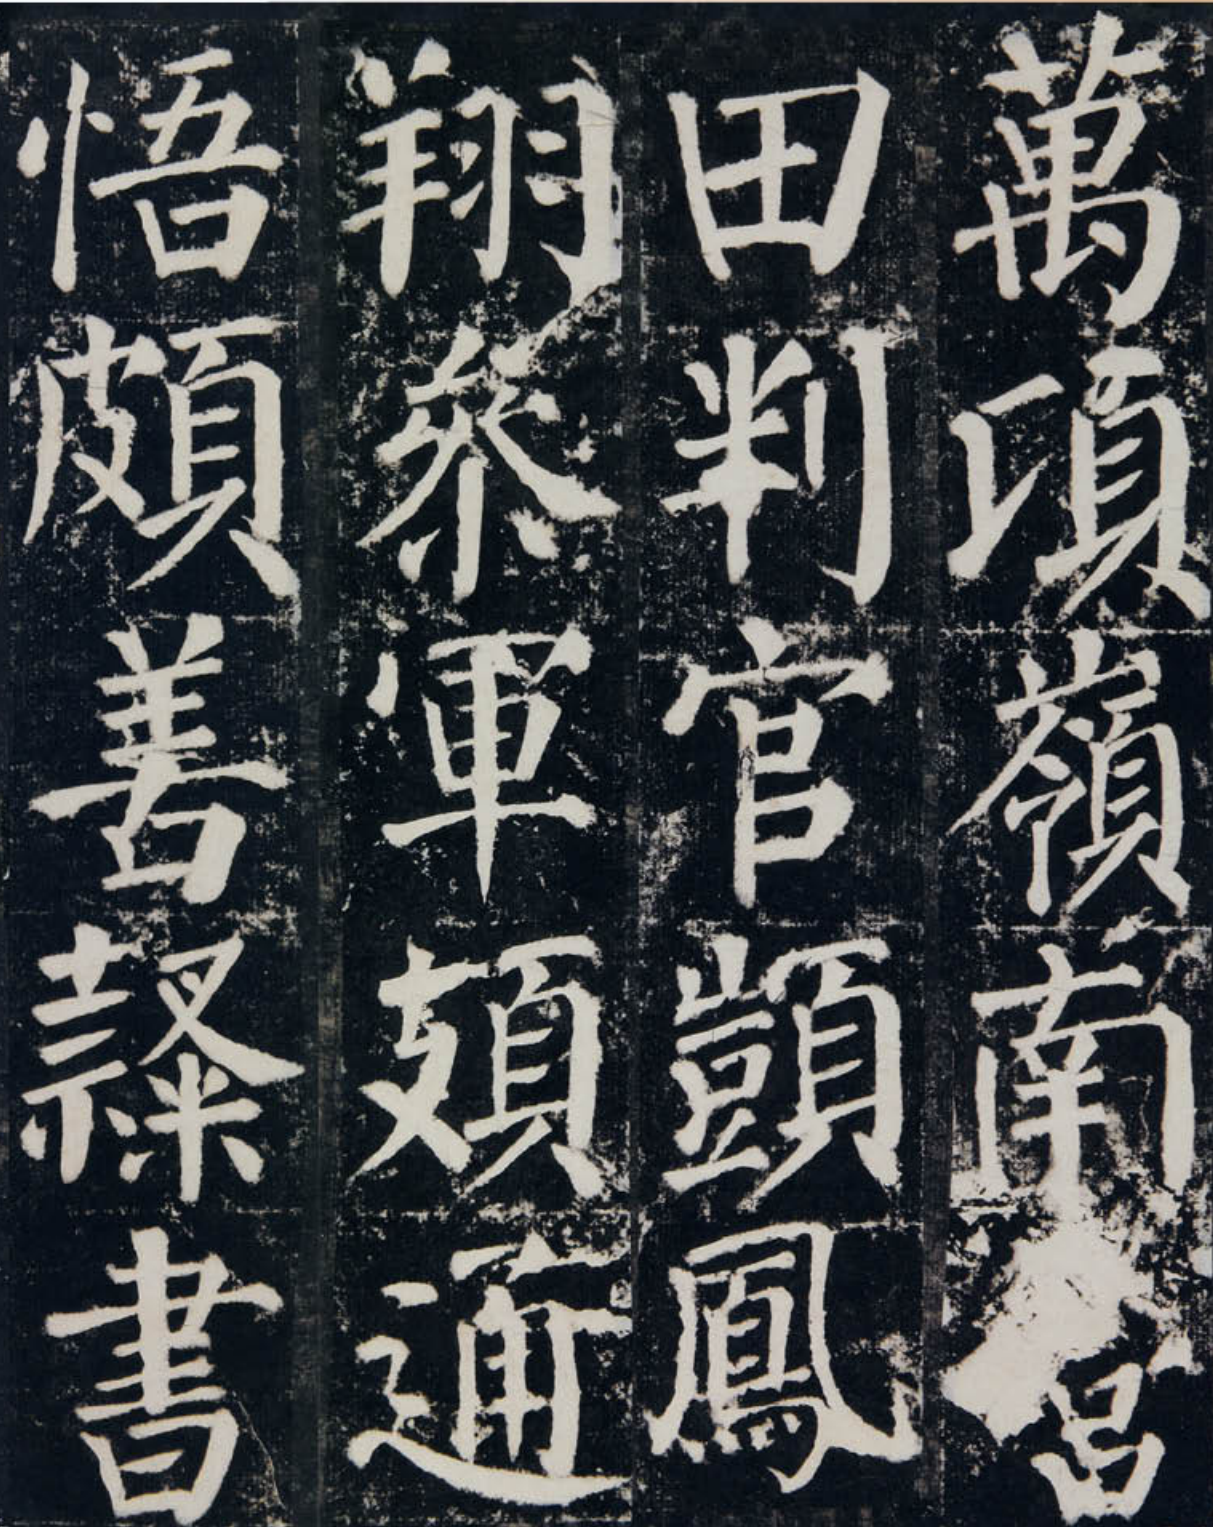 萬頃嶺南營
田判官顗鳳
翔叅軍頍通
悟頗善隸書